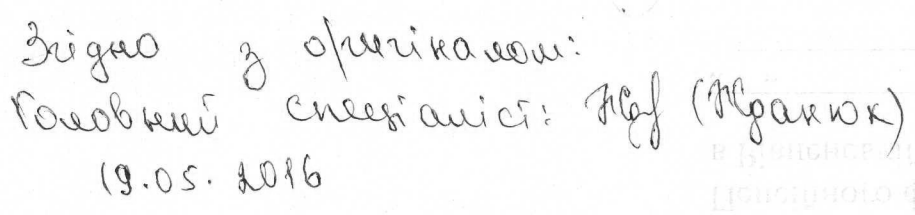 Згідно з оригіналом:
Головний спеціаліст: (Жданюк)
19.05.2016